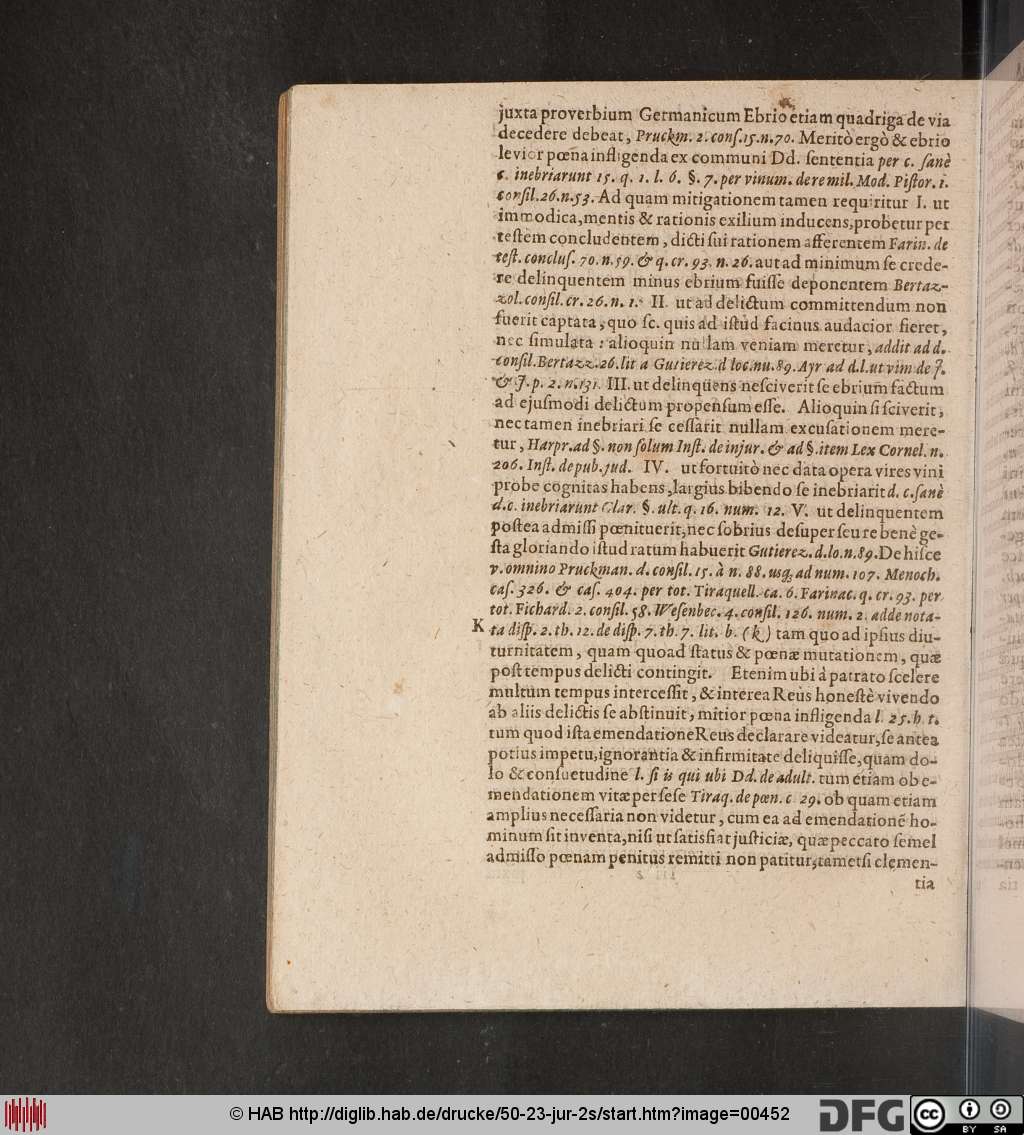 juxta proverbium Germanicum Ebrio etiam quadriga de via
decedere debeat, Pruckm. 2. conſ. 15. n. 70. Meritò ergò & ebrio
levior pœna infligenda ex communi Dd. ſententia per c. ſanè
c. inebriarunt 15. q. 1. l. 6. §. 7. per vinum. de re mil. Mod. Piſtor. 1.
conſil. 26. n. 53. Ad quam mitigationem tamen requiritur I. ut
immodica, mentis & rationis exilium inducens, probetur per
teſtem concludentem, dicti ſui rationem afferentem Farin. de
teſt. concluſ. 70. n. 59. & q. cr. 93. n. 26. aut ad minimum ſe crede-
re delinquentem minus ebrium fuiſſe deponentem Bertaz-
zol. conſil. cr. 26. n. 1. II. ut ad delictum committendum non
fuerit captata, quo ſc. quis ad iſtud facinus audacior fieret,
nec ſimulata: alioquin nullam veniam meretur, addit ad d.
conſil. Bertazz. 26. lit a Gutierez. d loc. nu. 89. Ayr ad d. l. ut vim de J.
& J. p. 2. n. 131. III. ut delinquens neſciverit ſe ebrium factum
ad ejuſmodi delictum propenſum eſſe. Alioquin ſi ſciverit,
nec tamen inebriari ſe ceſſarit nullam excuſationem mere-
tur, Harpr. ad §. non ſolum Inſt. de injur. & ad §. item Lex Cornel. n.
206. Inſt. de pub. jud. IV. ut fortuitò nec data opera vires vini
probe cognitas habens, largius bibendo ſe inebriarit d. c. ſanè
d. c. inebriarunt Clar. §. ult. q. 16. num. 12. V. ut delinquentem
poſtea admiſſi pœnituerit, nec ſobrius deſuper ſeu re benè ge-
ſta gloriando iſtud ratum habuerit Gutierez. d. lo. n. 89. De hiſce
v. omnino Pruckman. d. conſil. 15. à n. 88. usq; ad num. 107. Menoch.
caſ. 326. & caſ. 404. per tot. Tiraquell. ca. 6. Farinac. q. cr. 93. per
tot. Fichard. 2. conſil. 58. Weſenbec. 4. conſil. 126. num. 2. adde nota-
K ta diſp. 2. th. 12. de diſp. 7. th. 7. lit. b. (k) tam quo ad ipſius diu-
turnitatem, quam quoad ſtatus & pœnæ mutationem, quæ
poſt tempus delicti contingit. Etenim ubi à patrato ſcelere
multum tempus interceſſit, & interea Reus honeſtè vivendo
ab aliis delictis ſe abſtinuit, mitior pœna infligenda l. 25. h. t.
tum quod iſta emendatione Reus declarare videatur, ſe antea
potius impetu, ignorantia & infirmitate deliquiſſe, quam do-
lo & conſuetudine l. ſi is qui ubi Dd. de adult. tum etiam ob e-
mendationem vitæ per ſeſe Tiraq. de pœn. c 29. ob quam etiam
amplius neceſſaria non videtur, cum ea ad emendationẽ ho-
minum ſit inventa, niſi ut ſatisfiat juſticiæ, quæ peccato ſemel
admiſſo pœnam penitus remitti non patitur, tametſi clemen-
tia
© HAB http://diglib.hab.de/drucke/50-23-jur-2s/start.htm?image=00452
DFG
cc BY SA